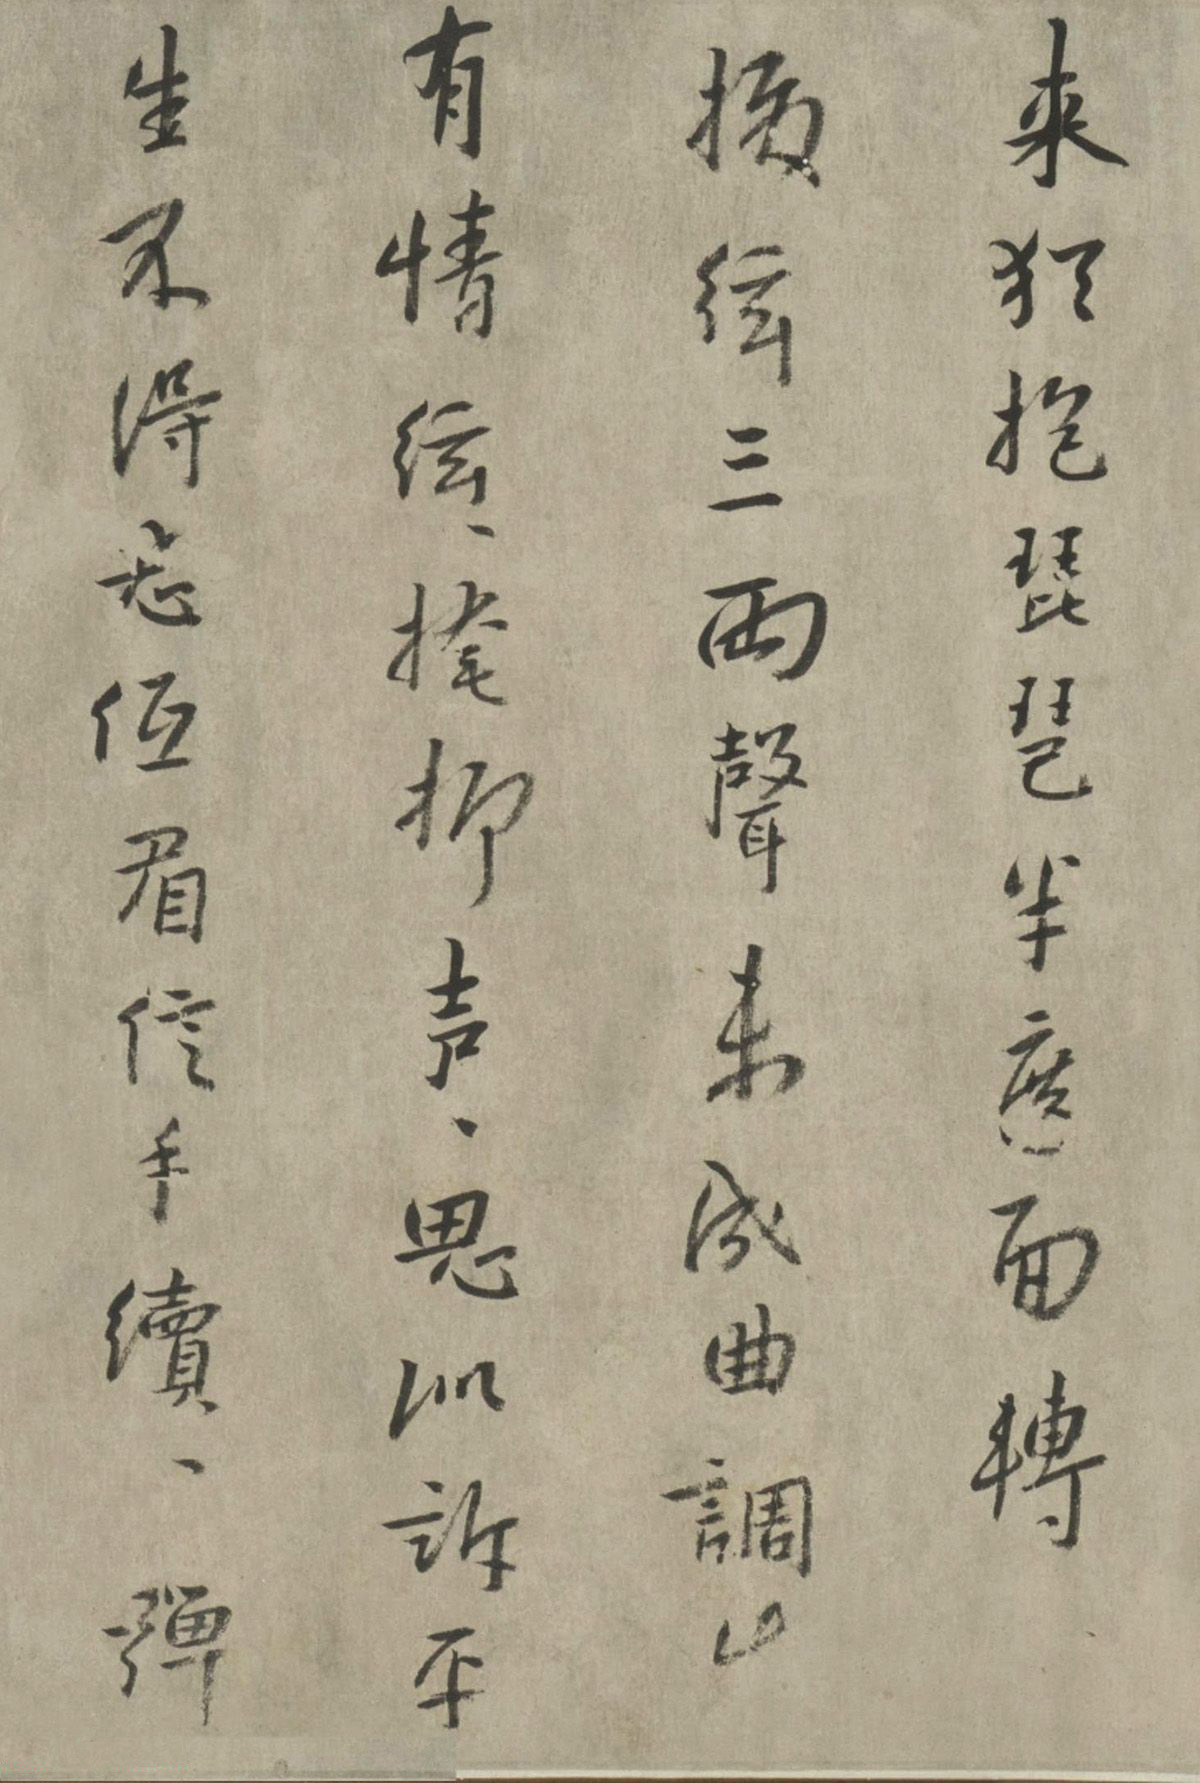 来猶抱琵琶半遮面轉
撥絃三兩聲未成曲調先
有情絃〻掩抑声〻思似訴平
生不得志低眉信手續〻彈